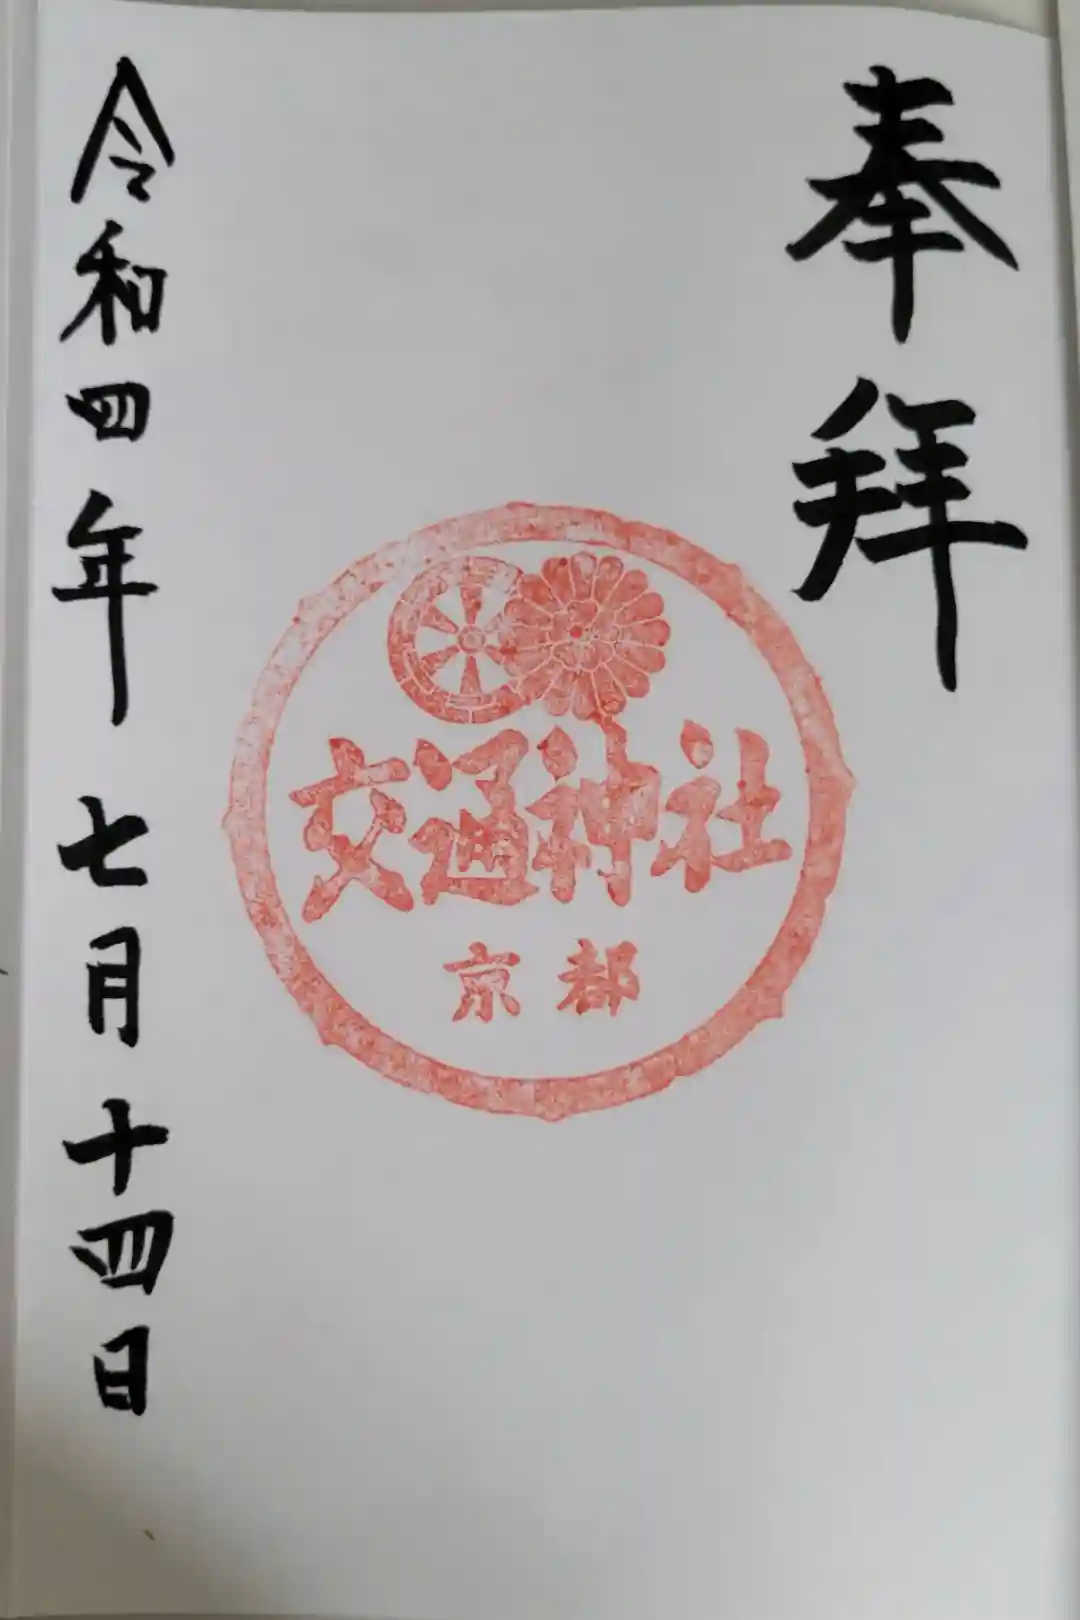 奉拝
交通神社
京都
令和四年 七月十四日